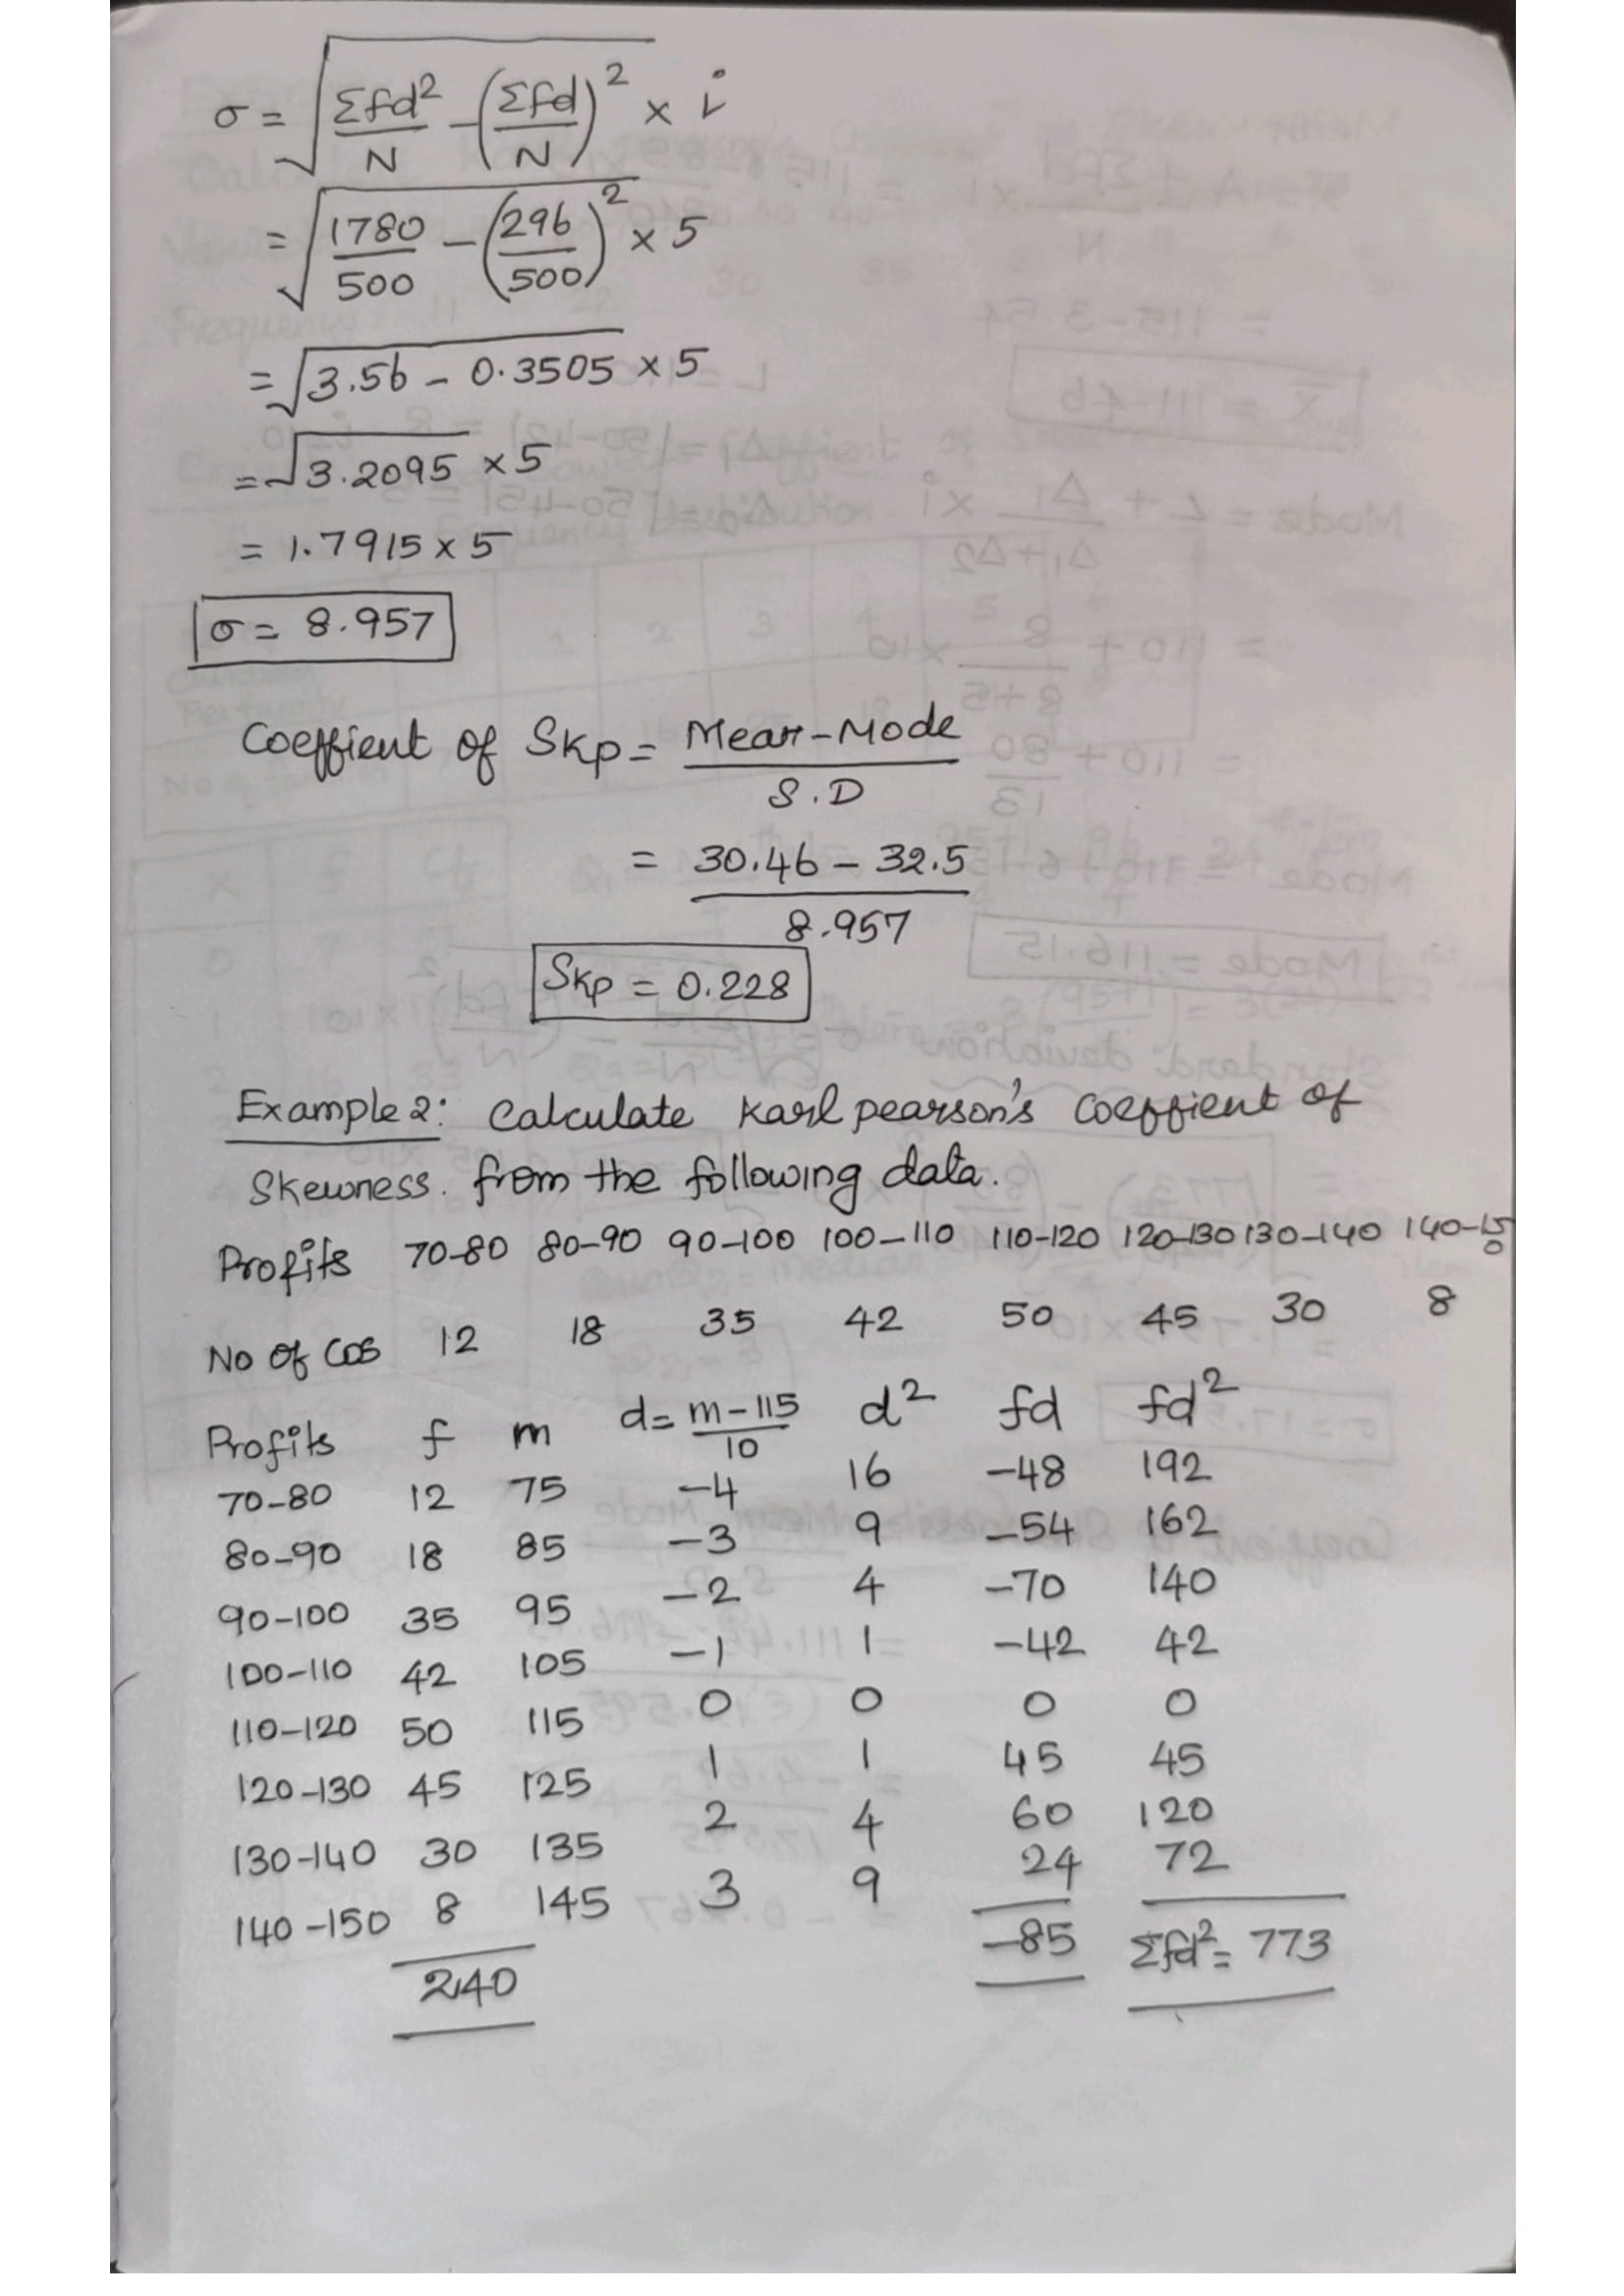 σ = √(Σfd²/N − (Σfd/N)²) × i
= √(1780/500 − (296/500)²) × 5
= √(3.56 − 0.3505) × 5
= √3.2095 × 5
= 1.7915 × 5
σ = 8.957
Coeffient of SKp = Mean − Mode / S.D
= 30.46 − 32.5 / 8.957
SKp = 0.228
Example 2: Calculate Karl pearson's Coeffient of
Skewness. from the following data.
Profits 70-80 80-90 90-100 100-110 110-120 120-130 130-140 140-150
No of Cos 12 18 35 42 50 45 30 8
Profits f m d = m − 115 / 10 d² fd fd²
70-80 12 75 −4 16 −48 192
80-90 18 85 −3 9 −54 162
90-100 35 95 −2 4 −70 140
100-110 42 105 −1 1 −42 42
110-120 50 115 0 0 0 0
120-130 45 125 1 1 45 45
130-140 30 135 2 4 60 120
140-150 8 145 3 9 24 72
240 −85 Σfd² = 773